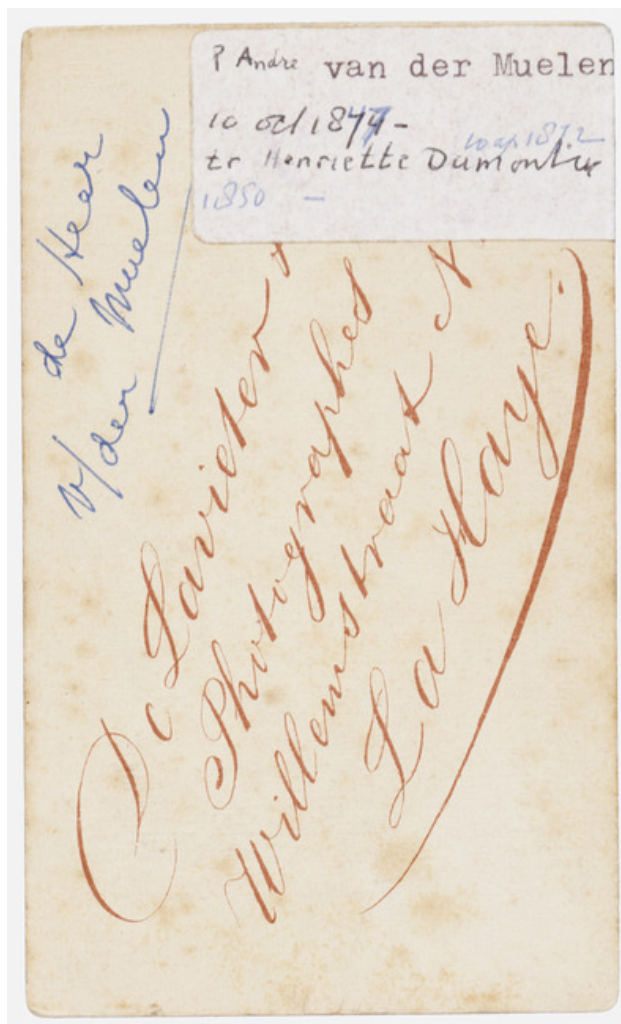 P Andre van der Muelen
10 oct 1847 -
tr Henriette Dumontier
10 ap 1872
1850 -
de Heer
v/der Muelen
De Lavieter
Photographes
Willemstraat N
La Haye.